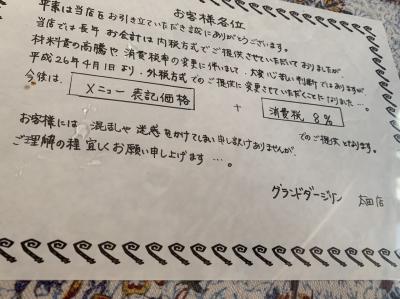 お客様各位
平素は当店をお引き立ていただき誠にありがとうございます。
当店では長年お会計は内税方式でご提供させていただいておりましたが、
材料費の高騰や消費税率の変更に伴いまして、大変心苦しい判断ではありますが
平成26年4月1日より、外税方式でのご提供に変更させていただくことになりました…。
今後は、 メニュー表記価格 + 消費税 8% でのご提供となります。
お客様には 混乱や 迷惑をかけてしまい申し訳ありませんが、
ご理解の程 宜しくお願い申し上げます…。
グランドダージリン 太田店